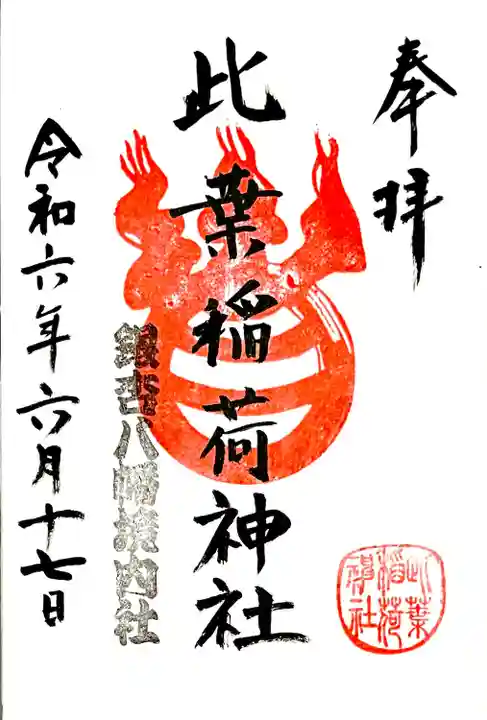 奉拝
此葉稲荷神社
銀杏八幡境内社
令和六年六月十七日
此葉
稲荷
神社